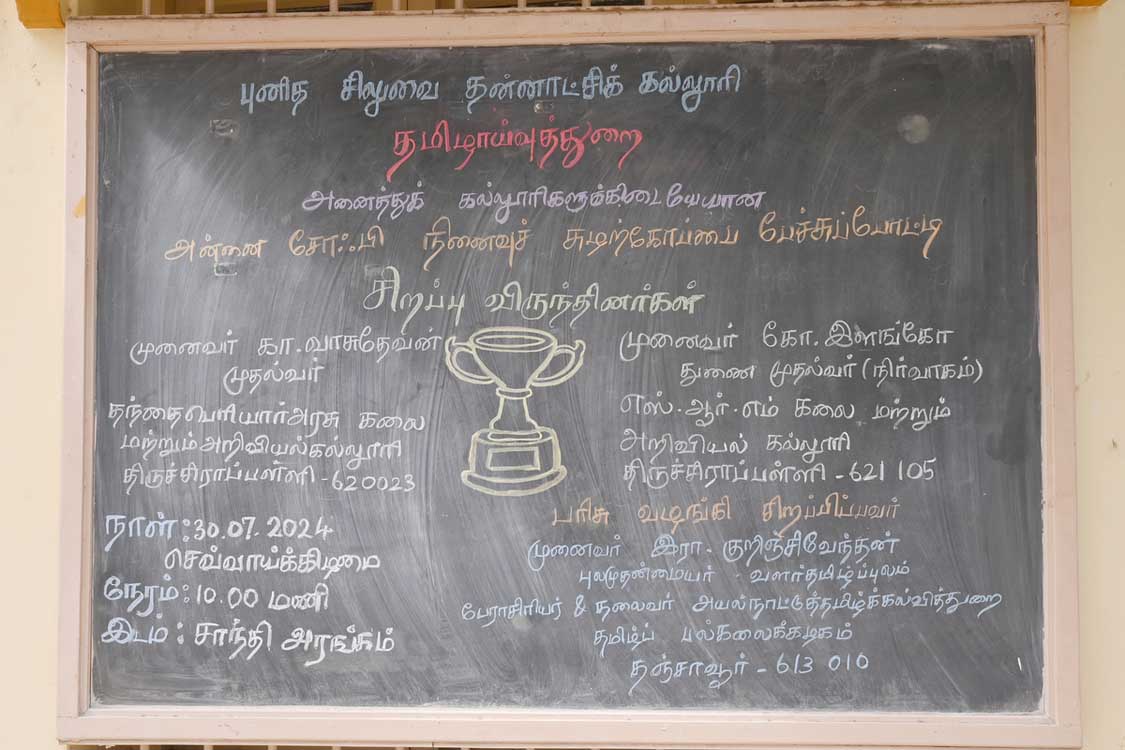 புனித சிலுவை தன்னாட்சிக் கல்லூரி
தமிழாய்வுத்துறை
அனைத்துக் கல்லூரிகளுக்கிடையேயான
அன்னை சோஃபி நினைவுச் சுழற்கோப்பை பேச்சுப்போட்டி
சிறப்பு விருந்தினர்கள்
முனைவர் கா.வாசுதேவன்
முதல்வர்
தந்தைபெரியார்அரசு கலை
மற்றும்அறிவியல்கல்லூரி
திருச்சிராப்பள்ளி - 620023
முனைவர் கோ.இளங்கோ
துணை முதல்வர் (நிர்வாகம்)
எஸ்.ஆர்.எம் கலை மற்றும்
அறிவியல் கல்லூரி
திருச்சிராப்பள்ளி - 621 105
நாள் : 30.07.2024
செவ்வாய்க்கிழமை
நேரம் : 10.00 மணி
இடம் : சாந்தி அரங்கம்
பரிசு வழங்கி சிறப்பிப்பவர்
முனைவர் இரா. குறிஞ்சிவேந்தன்
புலமுதன்மையர் - வளர்தமிழ்ப்புலம்
பேராசிரியர் & தலைவர் அயல்நாட்டுத்தமிழ்க்கல்வித்துறை
தமிழ்ப் பல்கலைக்கழகம்
தஞ்சாவூர் - 613 010